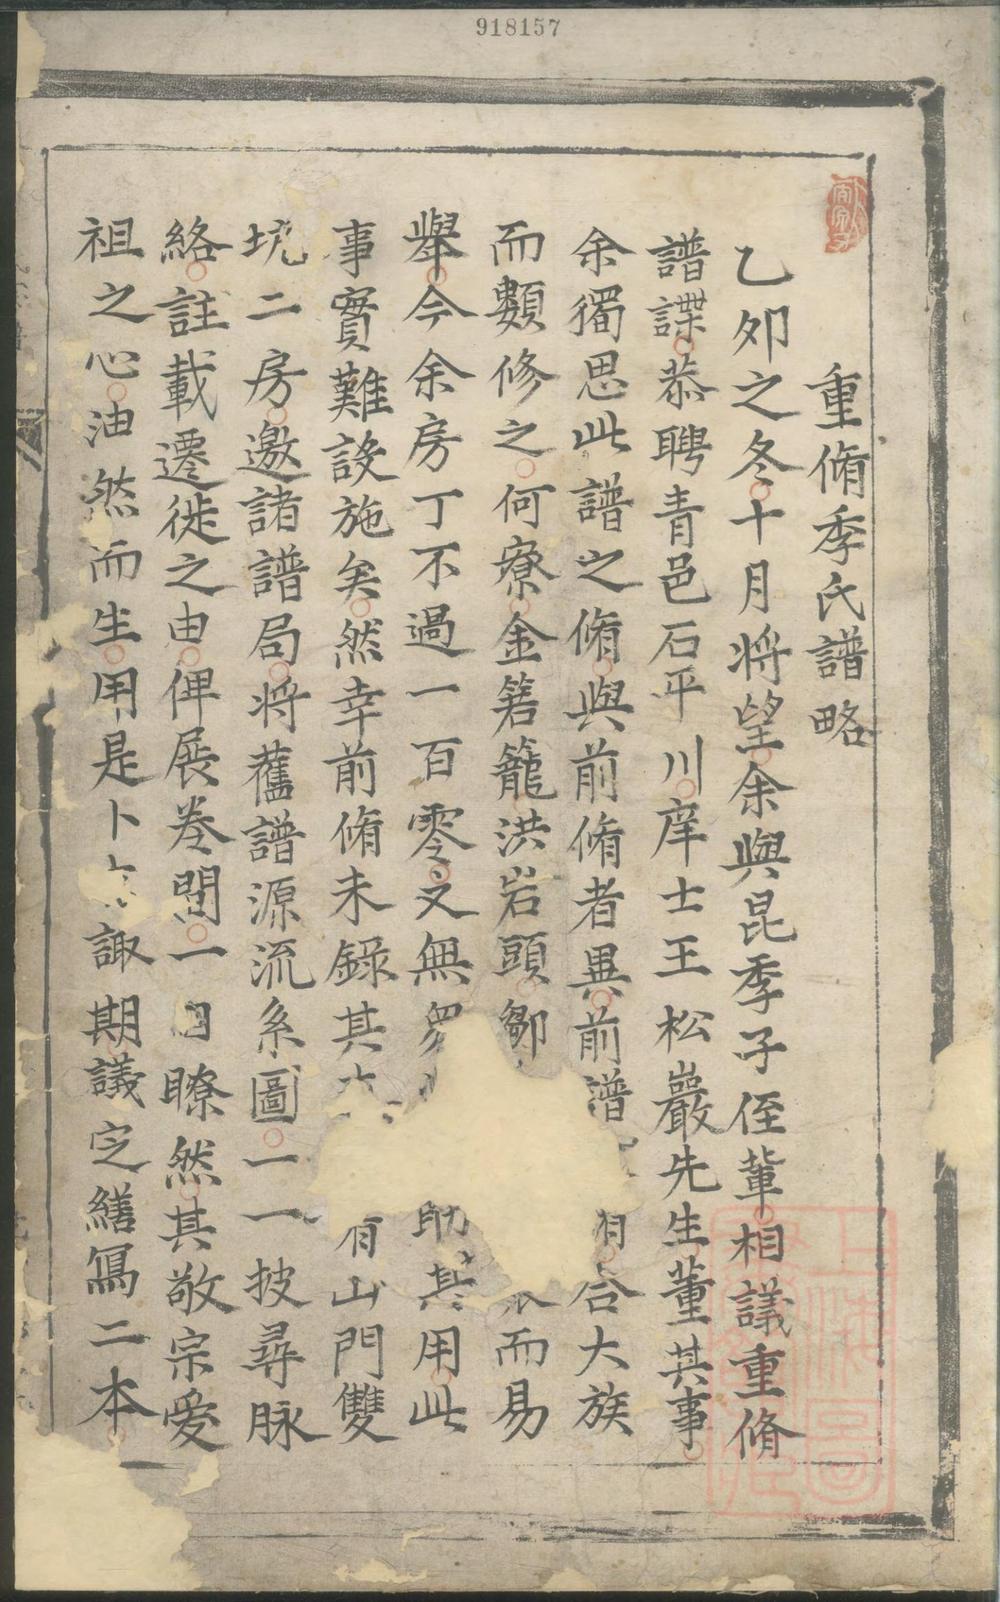 918157
重脩季氏譜略
乙夘之冬十月將望余與昆季子侄輩相議重脩
譜諜恭聘青邑石平川庠士王松巖先生董其事
余獨思此譜之脩與前脩者異前譜合大族
而數修之何寮金箬籠洪岩頭鄒而易
舉今余房丁不過一百零又無助其用此
事實難設施矣然幸前脩未錄其有山門雙
坑二房邀諸譜局將舊譜源流系圖一一披尋脉
絡註載遷徙之由俾展卷間一目瞭然其敬宗愛
祖之心油然而生用是卜諏期議定繕寫二本